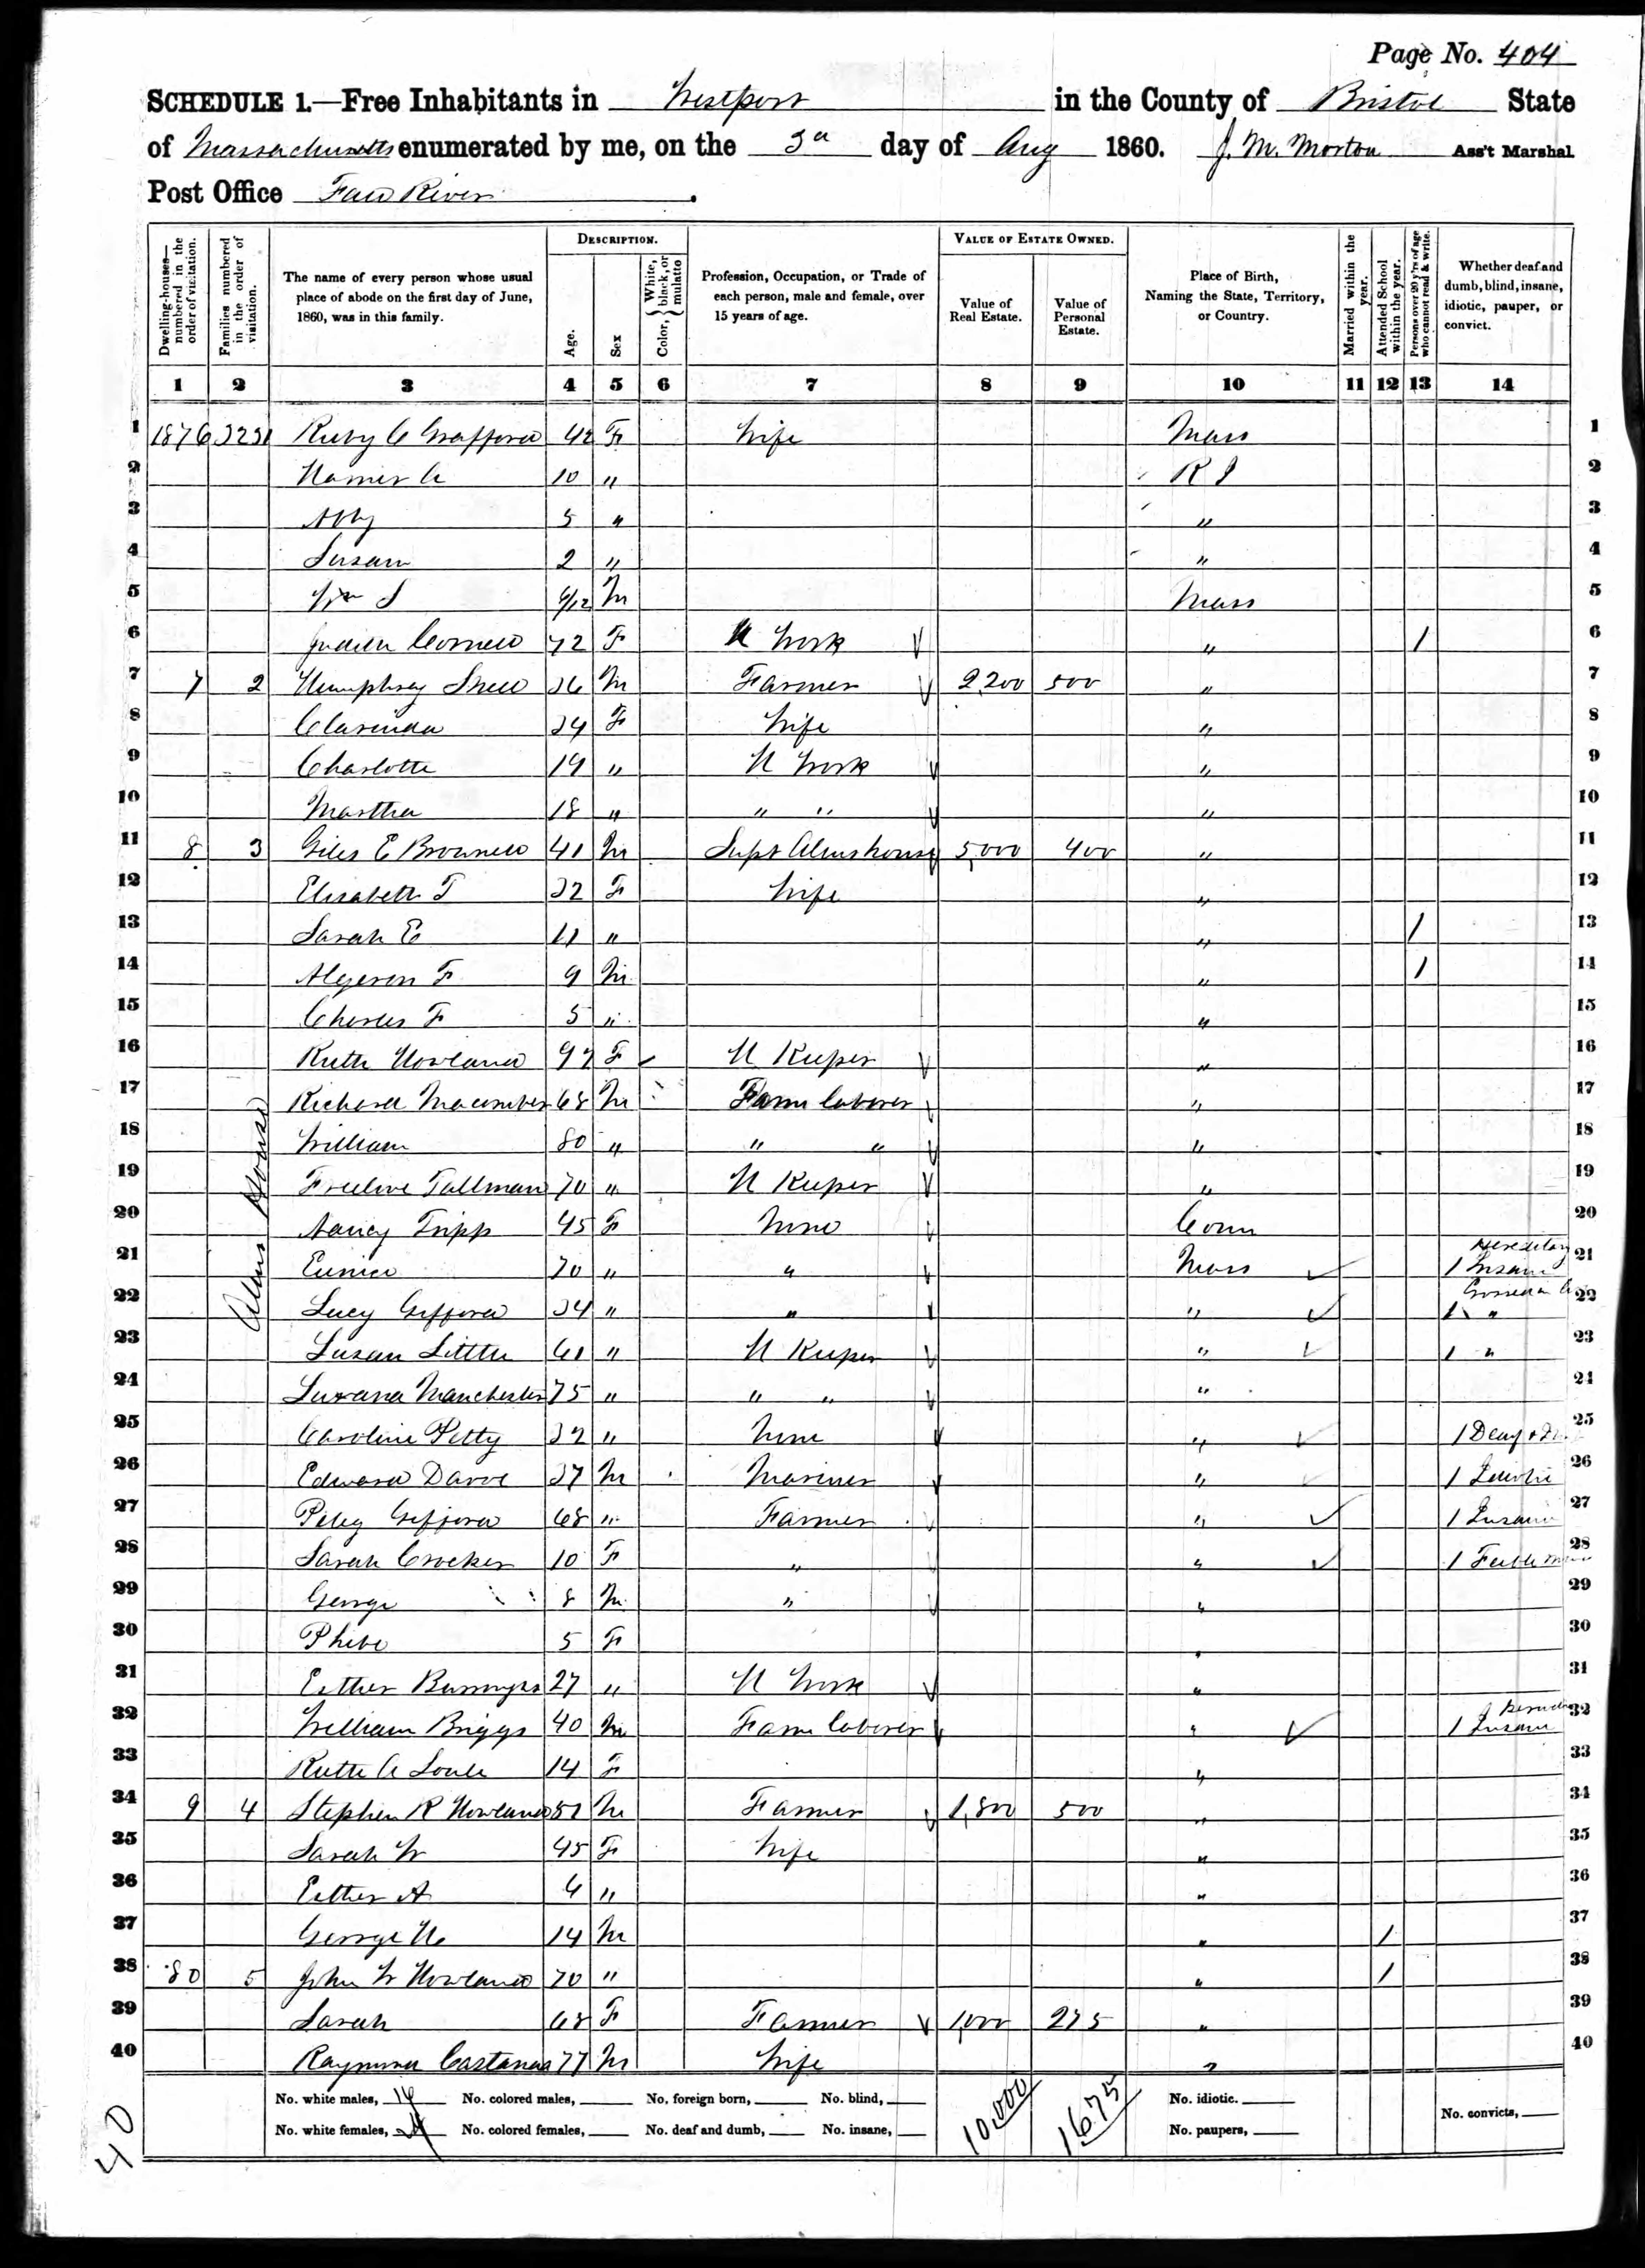 Page No. 404
SCHEDULE 1.—Free Inhabitants in Westport in the County of Bristol State
of Massachusetts enumerated by me, on the 3d day of Aug 1860. J. M. Morton Ass't Marshal
Post Office Fall River.
Dwelling-houses—numbered in the order of visitation.
Families numbered in the order of visitation.
The name of every person whose usual place of abode on the first day of June, 1860, was in this family.
DESCRIPTION.
Age.
Sex
Color, White, black, or mulatto
Profession, Occupation, or Trade of each person, male and female, over 15 years of age.
VALUE OF ESTATE OWNED.
Value of Real Estate.
Value of Personal Estate.
Place of Birth, Naming the State, Territory, or Country.
Married within the year.
Attended School within the year.
Persons over 20 y'rs of age who cannot read & write.
Whether deaf and dumb, blind, insane, idiotic, pauper, or convict.
1 2 3 4 5 6 7 8 9 10 11 12 13 14
1 1876 Ruby C 42 F Wife Mass 1
2 10 " R I 2
3 Abby 5 " " 3
4 Susan 2 " " 4
5 Wm S /12 M Mass 5
6 Judith Cornell 72 F H Work " 1 6
7 7 2 Humphrey Snell 36 M Farmer 2,200 500 " 7
8 Clarinda 34 F Wife " 8
9 Charlotte 19 " H Work " 9
10 Martha 18 " " " " 10
11 8 3 Giles E Brownell 41 M Supt Almshouse 5,000 400 " 11
12 Elisabeth T 32 F Wife " 12
13 Sarah E 11 " " 1 13
14 F 9 M " 1 14
15 Charles F 5 " " 15
16 Ruth Howland 97 F H Keeper " 16
17 Richard Macomber 68 M Farm laborer " 17
18 William 80 " " " " 18
Alms House
19 Freelove Tallman 70 " H Keeper " 19
20 Nancy Tripp 45 F None Conn 20
21 Eunice 70 " " Mass Hereditary 1 Insane 21
22 Lucy Gifford 34 " " " 1 " 22
23 Susan Little 61 " H Keeper " 1 " 23
24 Manchester 75 " " " " 24
25 Caroline Petty 32 " None " 1 Deaf & D 25
26 Edward 37 M Mariner " 1 26
27 Peleg Gifford 68 " Farmer " 1 Insane 27
28 Sarah Crocker 10 F " " 1 Feeble 28
29 George 8 M " " 29
30 Phebe 5 F " 30
31 Esther Burroughs 27 " H Work " 31
32 William Briggs 40 M Farm laborer " 1 Insane 32
33 Ruth A Soule 14 F " 33
34 9 4 Stephen R Howland 51 M Farmer 1,800 500 " 34
35 Sarah W 45 F Wife " 35
36 Esther A " " 36
37 George H 14 M " 1 37
38 80 5 John W Howland 70 " " 1 38
39 Sarah 68 F Farmer 1,000 275 " 39
40 77 M Wife " 40
No. white males, 16 No. colored males, No. foreign born, No. blind, 10,000 1675 No. idiotic.
No. white females, 24 No. colored females, No. deaf and dumb, No. insane, No. paupers, No. convicts,
40